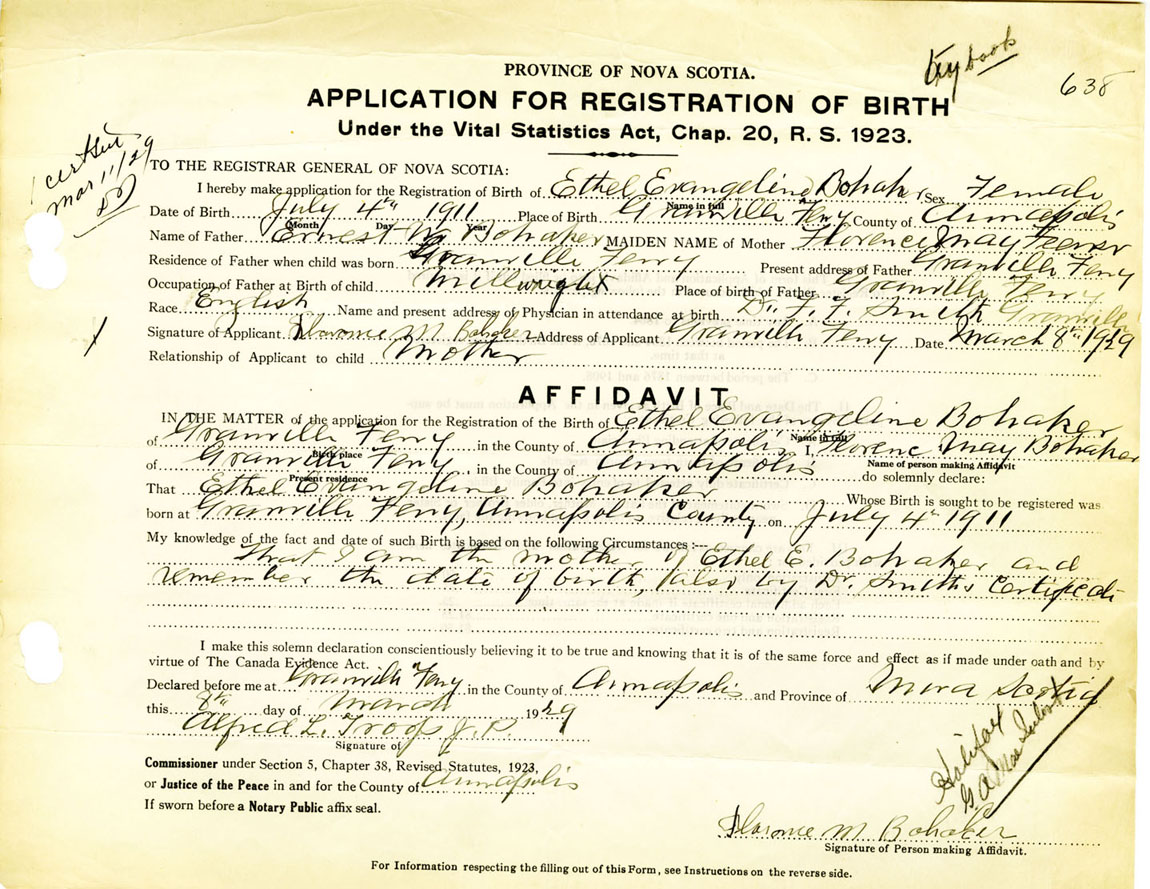 638
PROVINCE OF NOVA SCOTIA.
APPLICATION FOR REGISTRATION OF BIRTH
Under the Vital Statistics Act, Chap. 20, R. S. 1923.
Mar 11/29
TO THE REGISTRAR GENERAL OF NOVA SCOTIA:
I hereby make application for the Registration of Birth of Ethel Evangeline Bohaker Sex Female
Name in full
Date of Birth July 4th 1911 Place of Birth Granville Ferry County of Annapolis
Month Day Year
Name of Father Ernest W Bohaker MAIDEN NAME of Mother Florence May
Residence of Father when child was born Granville Ferry Present address of Father Granville Ferry
Occupation of Father at Birth of child Millwright Place of birth of Father Granville Ferry
Race English Name and present address of Physician in attendance at birth Dr. F. F. Smith Granville
Signature of Applicant Florence M Bohaker Address of Applicant Granville Ferry Date March 8th 1929
Relationship of Applicant to child Mother
AFFIDAVIT
IN THE MATTER of the application for the Registration of the Birth of Ethel Evangeline Bohaker
Name in full
of Granville Ferry in the County of Annapolis I, Florence May Bohaker
Birth place Name of person making Affidavit
of Granville Ferry in the County of Annapolis do solemnly declare:
Present residence
That Ethel Evangeline Bohaker Whose Birth is sought to be registered was
born at Granville Ferry, Annapolis County on July 4th 1911
My knowledge of the fact and date of such Birth is based on the following Circumstances :---
that I am the mother of Ethel E. Bohaker and
remember the date of birth, also by Dr. Smith's
I make this solemn declaration conscientiously believing it to be true and knowing that it is of the same force and effect as if made under oath and by
virtue of The Canada Evidence Act.
Declared before me at Granville Ferry in the County of Annapolis and Province of Nova Scotia
this 8th day of March 1929
Alfred L. Troop J. P.
Signature of
Commissioner under Section 5, Chapter 38, Revised Statutes, 1923,
or Justice of the Peace in and for the County of Annapolis
If sworn before a Notary Public affix seal.
Halifax
Florence M Bohaker
Signature of Person making Affidavit.
For Information respecting the filling out of this Form, see Instructions on the reverse side.